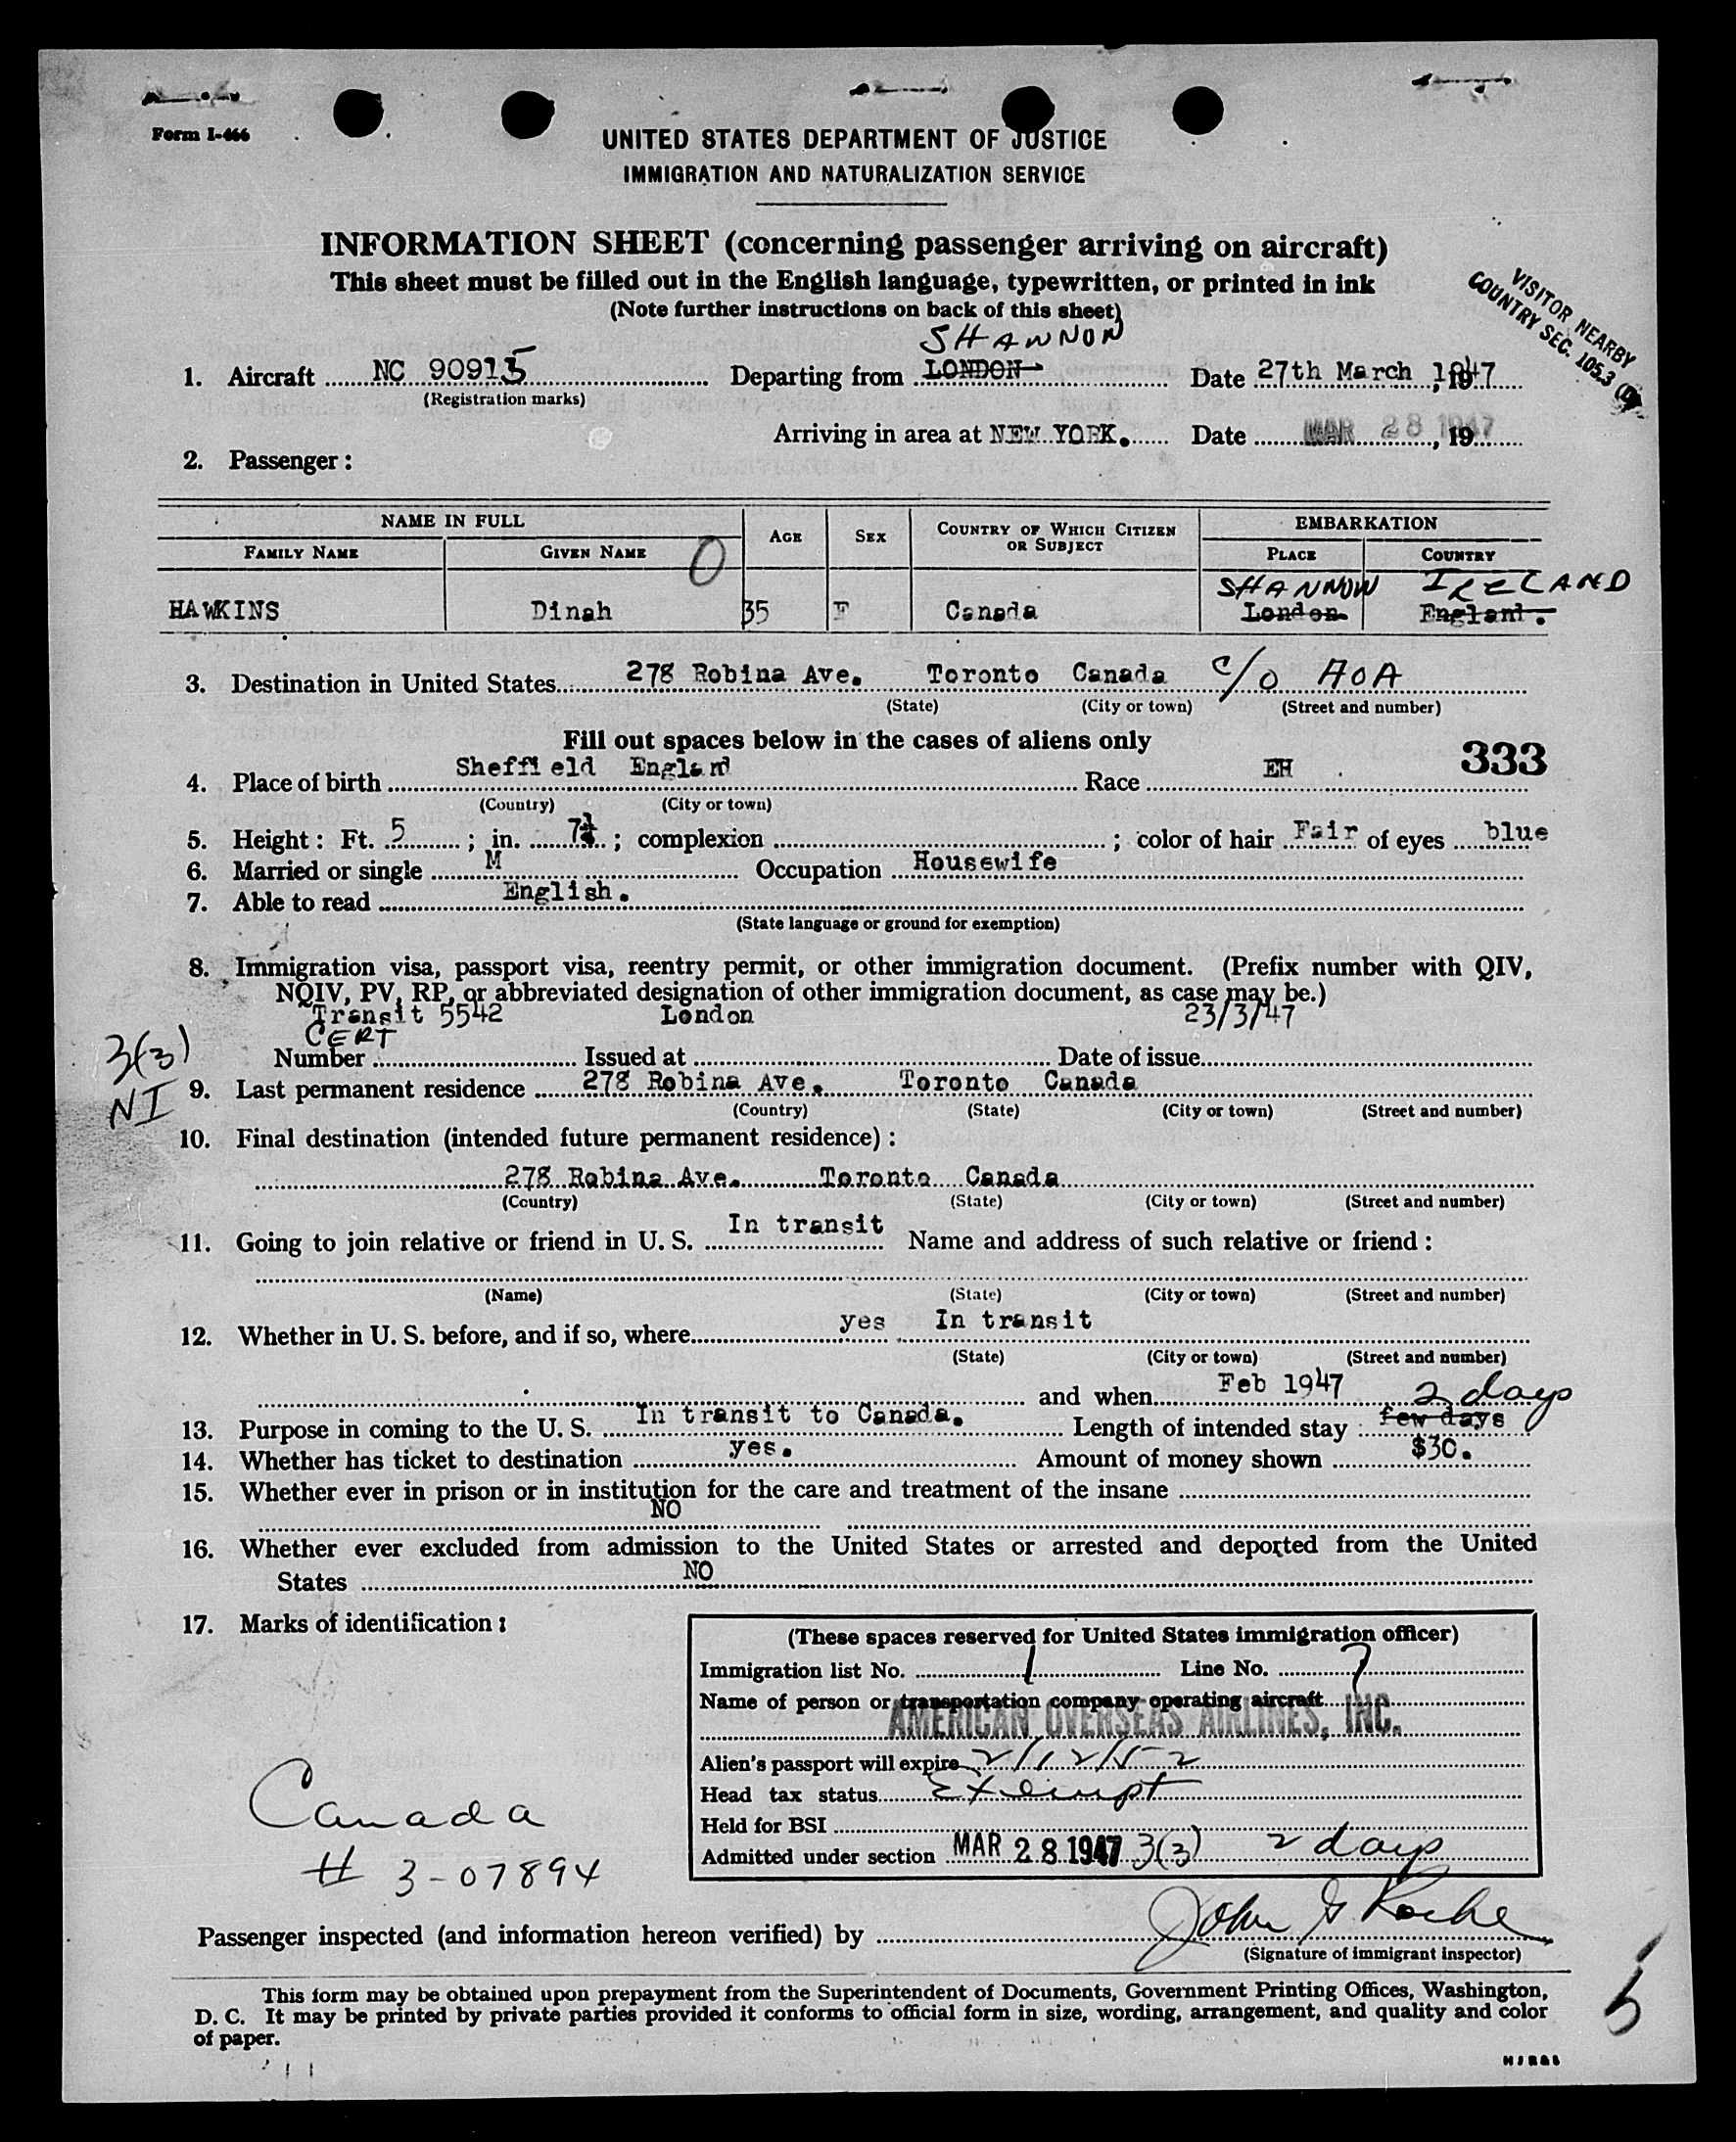 Form I-466
UNITED STATES DEPARTMENT OF JUSTICE
IMMIGRATION AND NATURALIZATION SERVICE
INFORMATION SHEET (concerning passenger arriving on aircraft)
This sheet must be filled out in the English language, typewritten, or printed in ink
(Note further instructions on back of this sheet)
VISITOR NEARBY
COUNTRY SEC. 105.3
SHANNON
1. Aircraft NC 90915 Departing from LONDON Date 27th March, 1947
(Registration marks)
Arriving in area at NEW YORK. Date MAR 28 1947, 19
2. Passenger:
NAME IN FULL AGE SEX COUNTRY OF WHICH CITIZEN OR SUBJECT EMBARKATION
FAMILY NAME GIVEN NAME O PLACE COUNTRY
SHANNON IRELAND
HAWKINS Dinah 35 F Canada London England.
3. Destination in United States 278 Robina Ave. Toronto Canada c/o AOA
(State) (City or town) (Street and number)
Fill out spaces below in the cases of aliens only
333
4. Place of birth Sheffield England Race EH
(Country) (City or town)
5. Height: Ft. 5; in. 7¾; complexion ; color of hair Fair of eyes blue
6. Married or single M Occupation Housewife
7. Able to read English.
(State language or ground for exemption)
8. Immigration visa, passport visa, reentry permit, or other immigration document. (Prefix number with QIV,
NQIV, PV, RP, or abbreviated designation of other immigration document, as case may be.)
Transit 5542 London 23/3/47
CERT
3(3)
NI
Number Issued at Date of issue
9. Last permanent residence 278 Robina Ave. Toronto Canada
(Country) (State) (City or town) (Street and number)
10. Final destination (intended future permanent residence):
278 Robina Ave. Toronto Canada
(Country) (State) (City or town) (Street and number)
11. Going to join relative or friend in U. S. In transit Name and address of such relative or friend:
(Name) (State) (City or town) (Street and number)
12. Whether in U. S. before, and if so, where yes In transit
(State) (City or town) (Street and number)
and when Feb 1947
2 days
13. Purpose in coming to the U. S. In transit to Canada. Length of intended stay few days
14. Whether has ticket to destination yes. Amount of money shown $30.
15. Whether ever in prison or in institution for the care and treatment of the insane
NO
16. Whether ever excluded from admission to the United States or arrested and deported from the United
States NO
17. Marks of identification:
(These spaces reserved for United States immigration officer)
Immigration list No. 1 Line No. 7
Name of person or transportation company operating aircraft
AMERICAN OVERSEAS AIRLINES, INC.
Alien's passport will expire 2/12/52
Head tax status Exempt
Held for BSI
Admitted under section MAR 28 1947 3(3) 2 days
Canada
# 3-07894
Passenger inspected (and information hereon verified) by John G Roche
(Signature of immigrant inspector)
This form may be obtained upon prepayment from the Superintendent of Documents, Government Printing Offices, Washington,
D. C. It may be printed by private parties provided it conforms to official form in size, wording, arrangement, and quality and color
of paper.